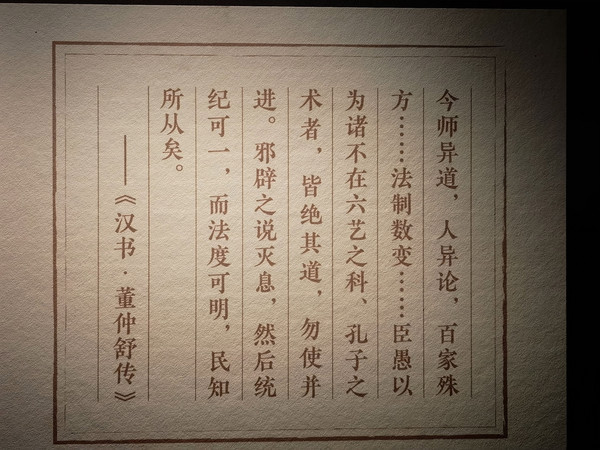 今师异道，人异论，百家殊
方……法制数变……臣愚以
为诸不在六艺之科、孔子之
术者，皆绝其道，勿使并
进。邪辟之说灭息，然后统
纪可一，而法度可明，民知
所从矣。
——《汉书·董仲舒传》